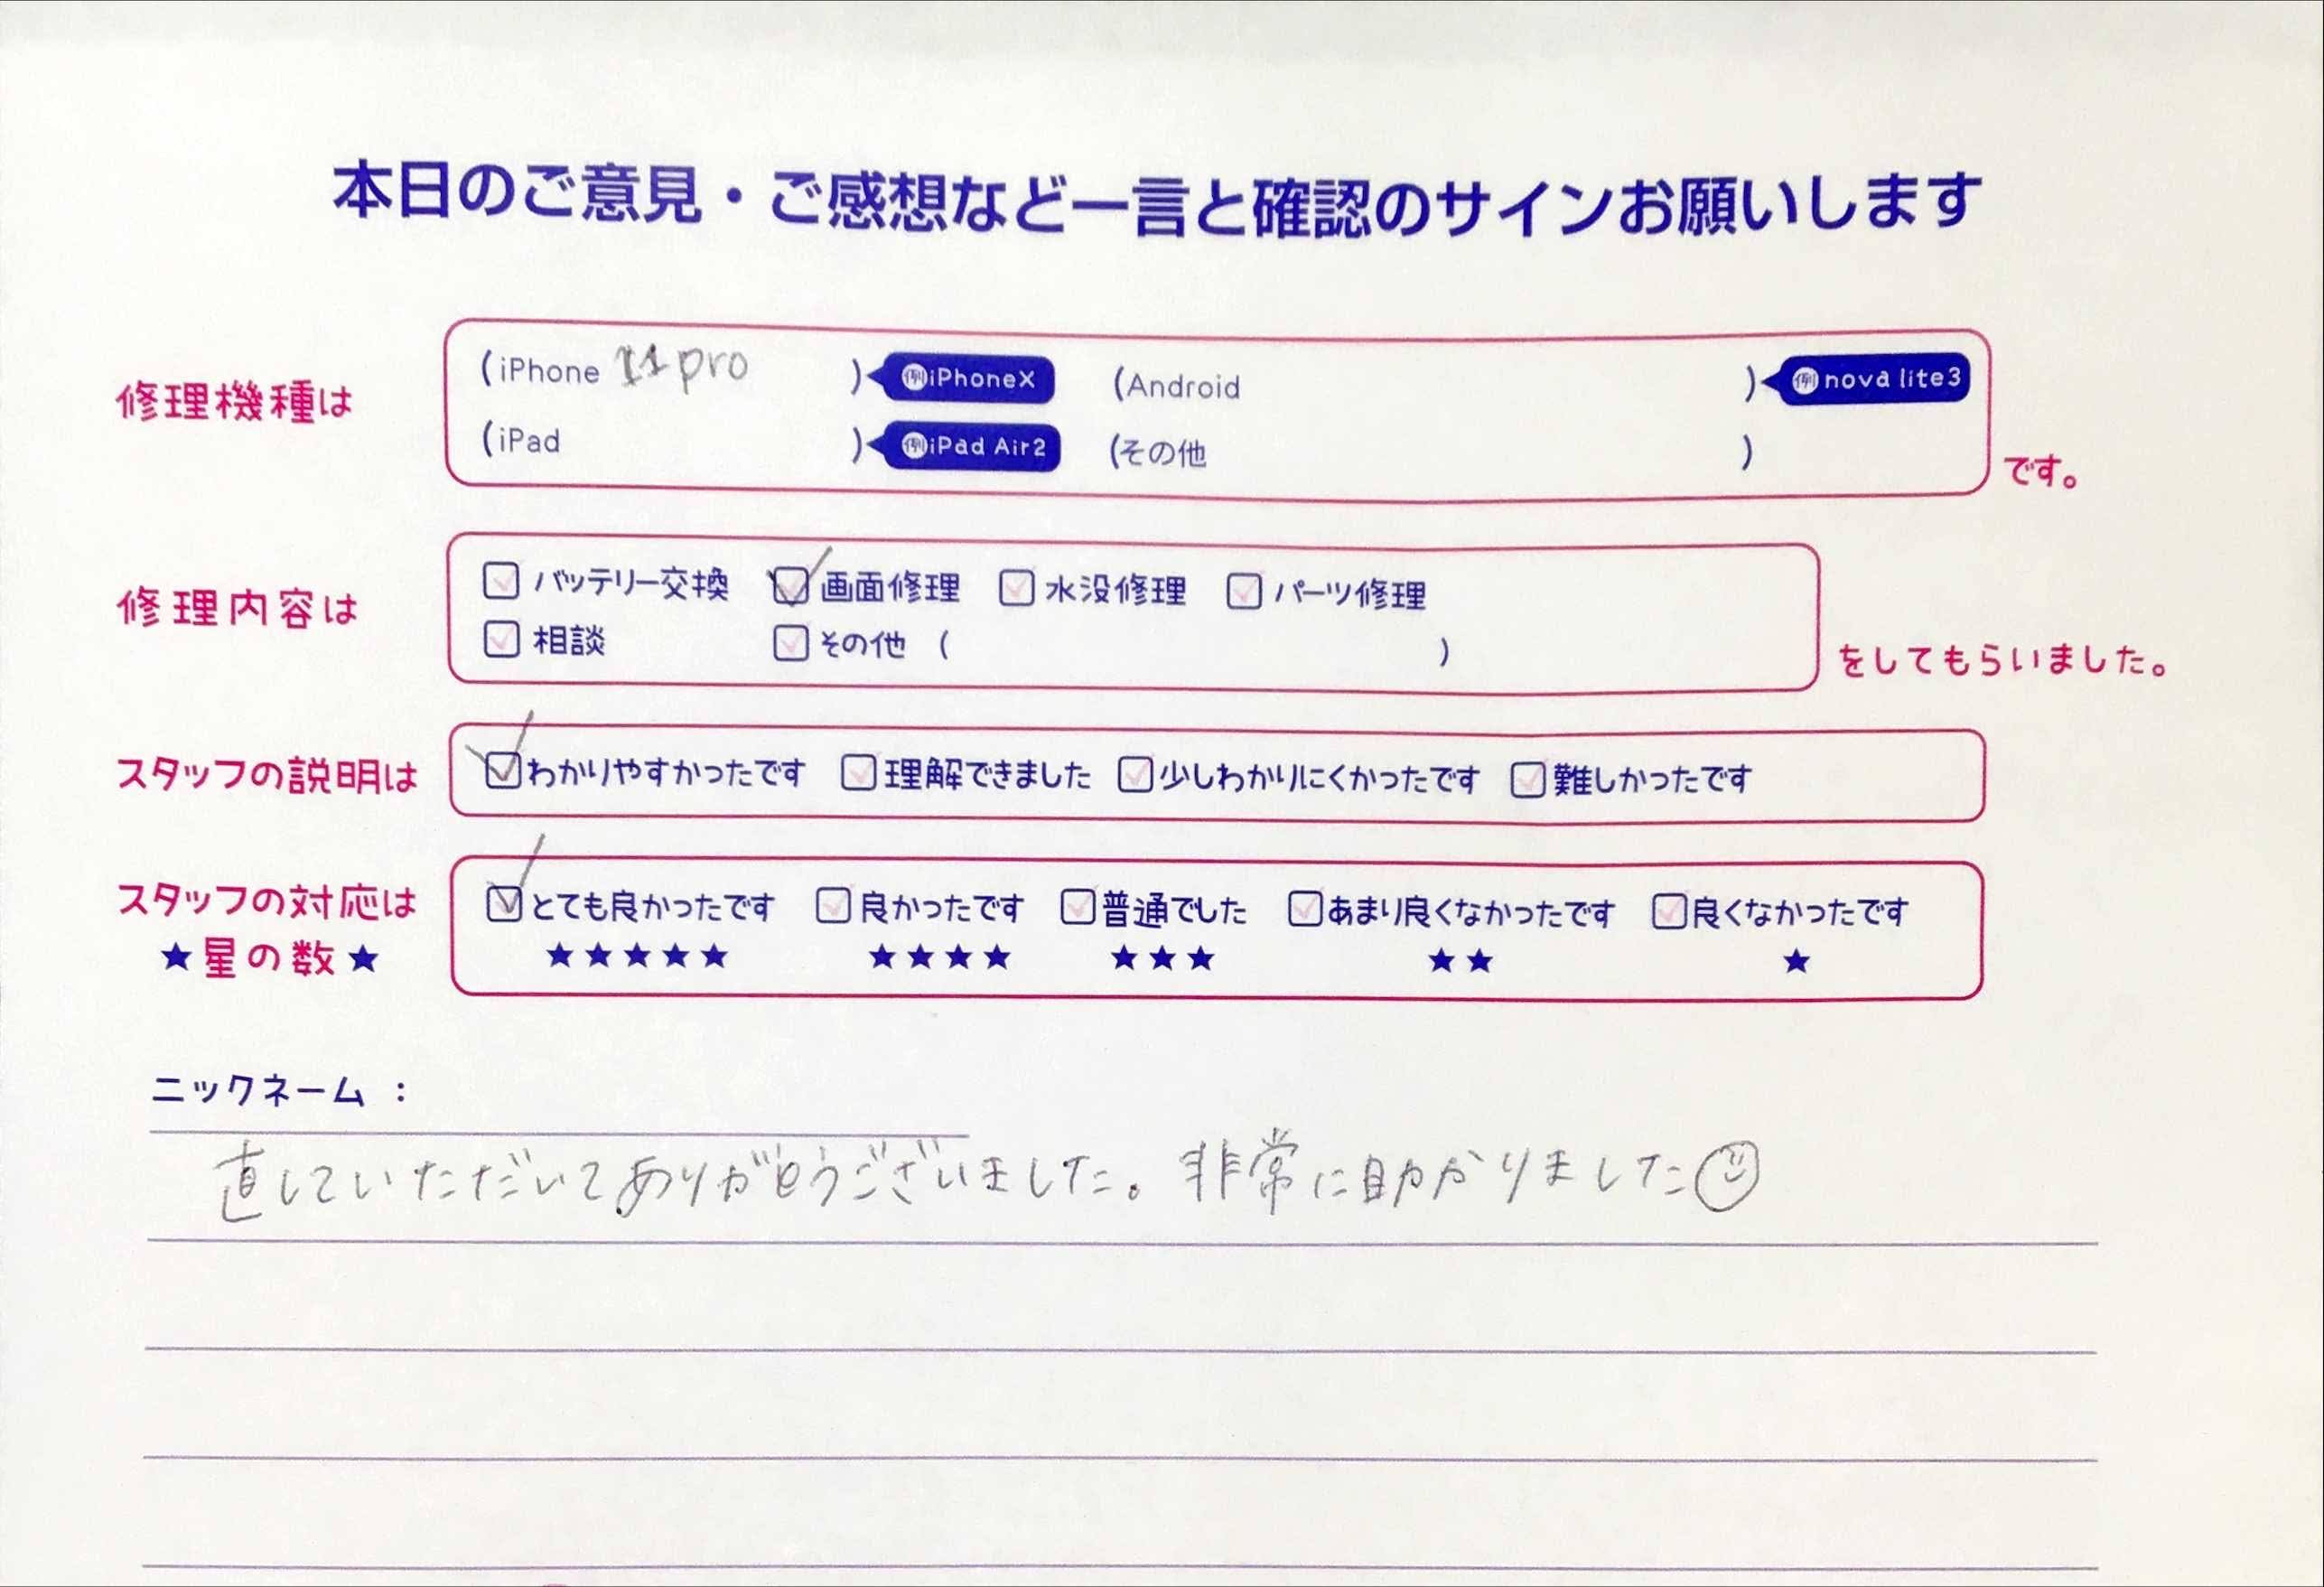 本日のご意見・ご感想など一言と確認のサインお願いします
修理機種は
(iPhone 11 pro ) 例iPhoneX (Android ) 例nova lite3
(iPad ) 例iPad Air2 (その他 )
です。
修理内容は
バッテリー交換 画面修理 水没修理 パーツ修理
相談 その他 ( )
をしてもらいました。
スタッフの説明は
わかりやすかったです 理解できました 少しわかりにくかったです 難しかったです
スタッフの対応は
★星の数★
とても良かったです 良かったです 普通でした あまり良くなかったです 良くなかったです
★★★★★ ★★★★ ★★★ ★★ ★
ニックネーム :
直していただいてありがとうございました。非常に助かりました